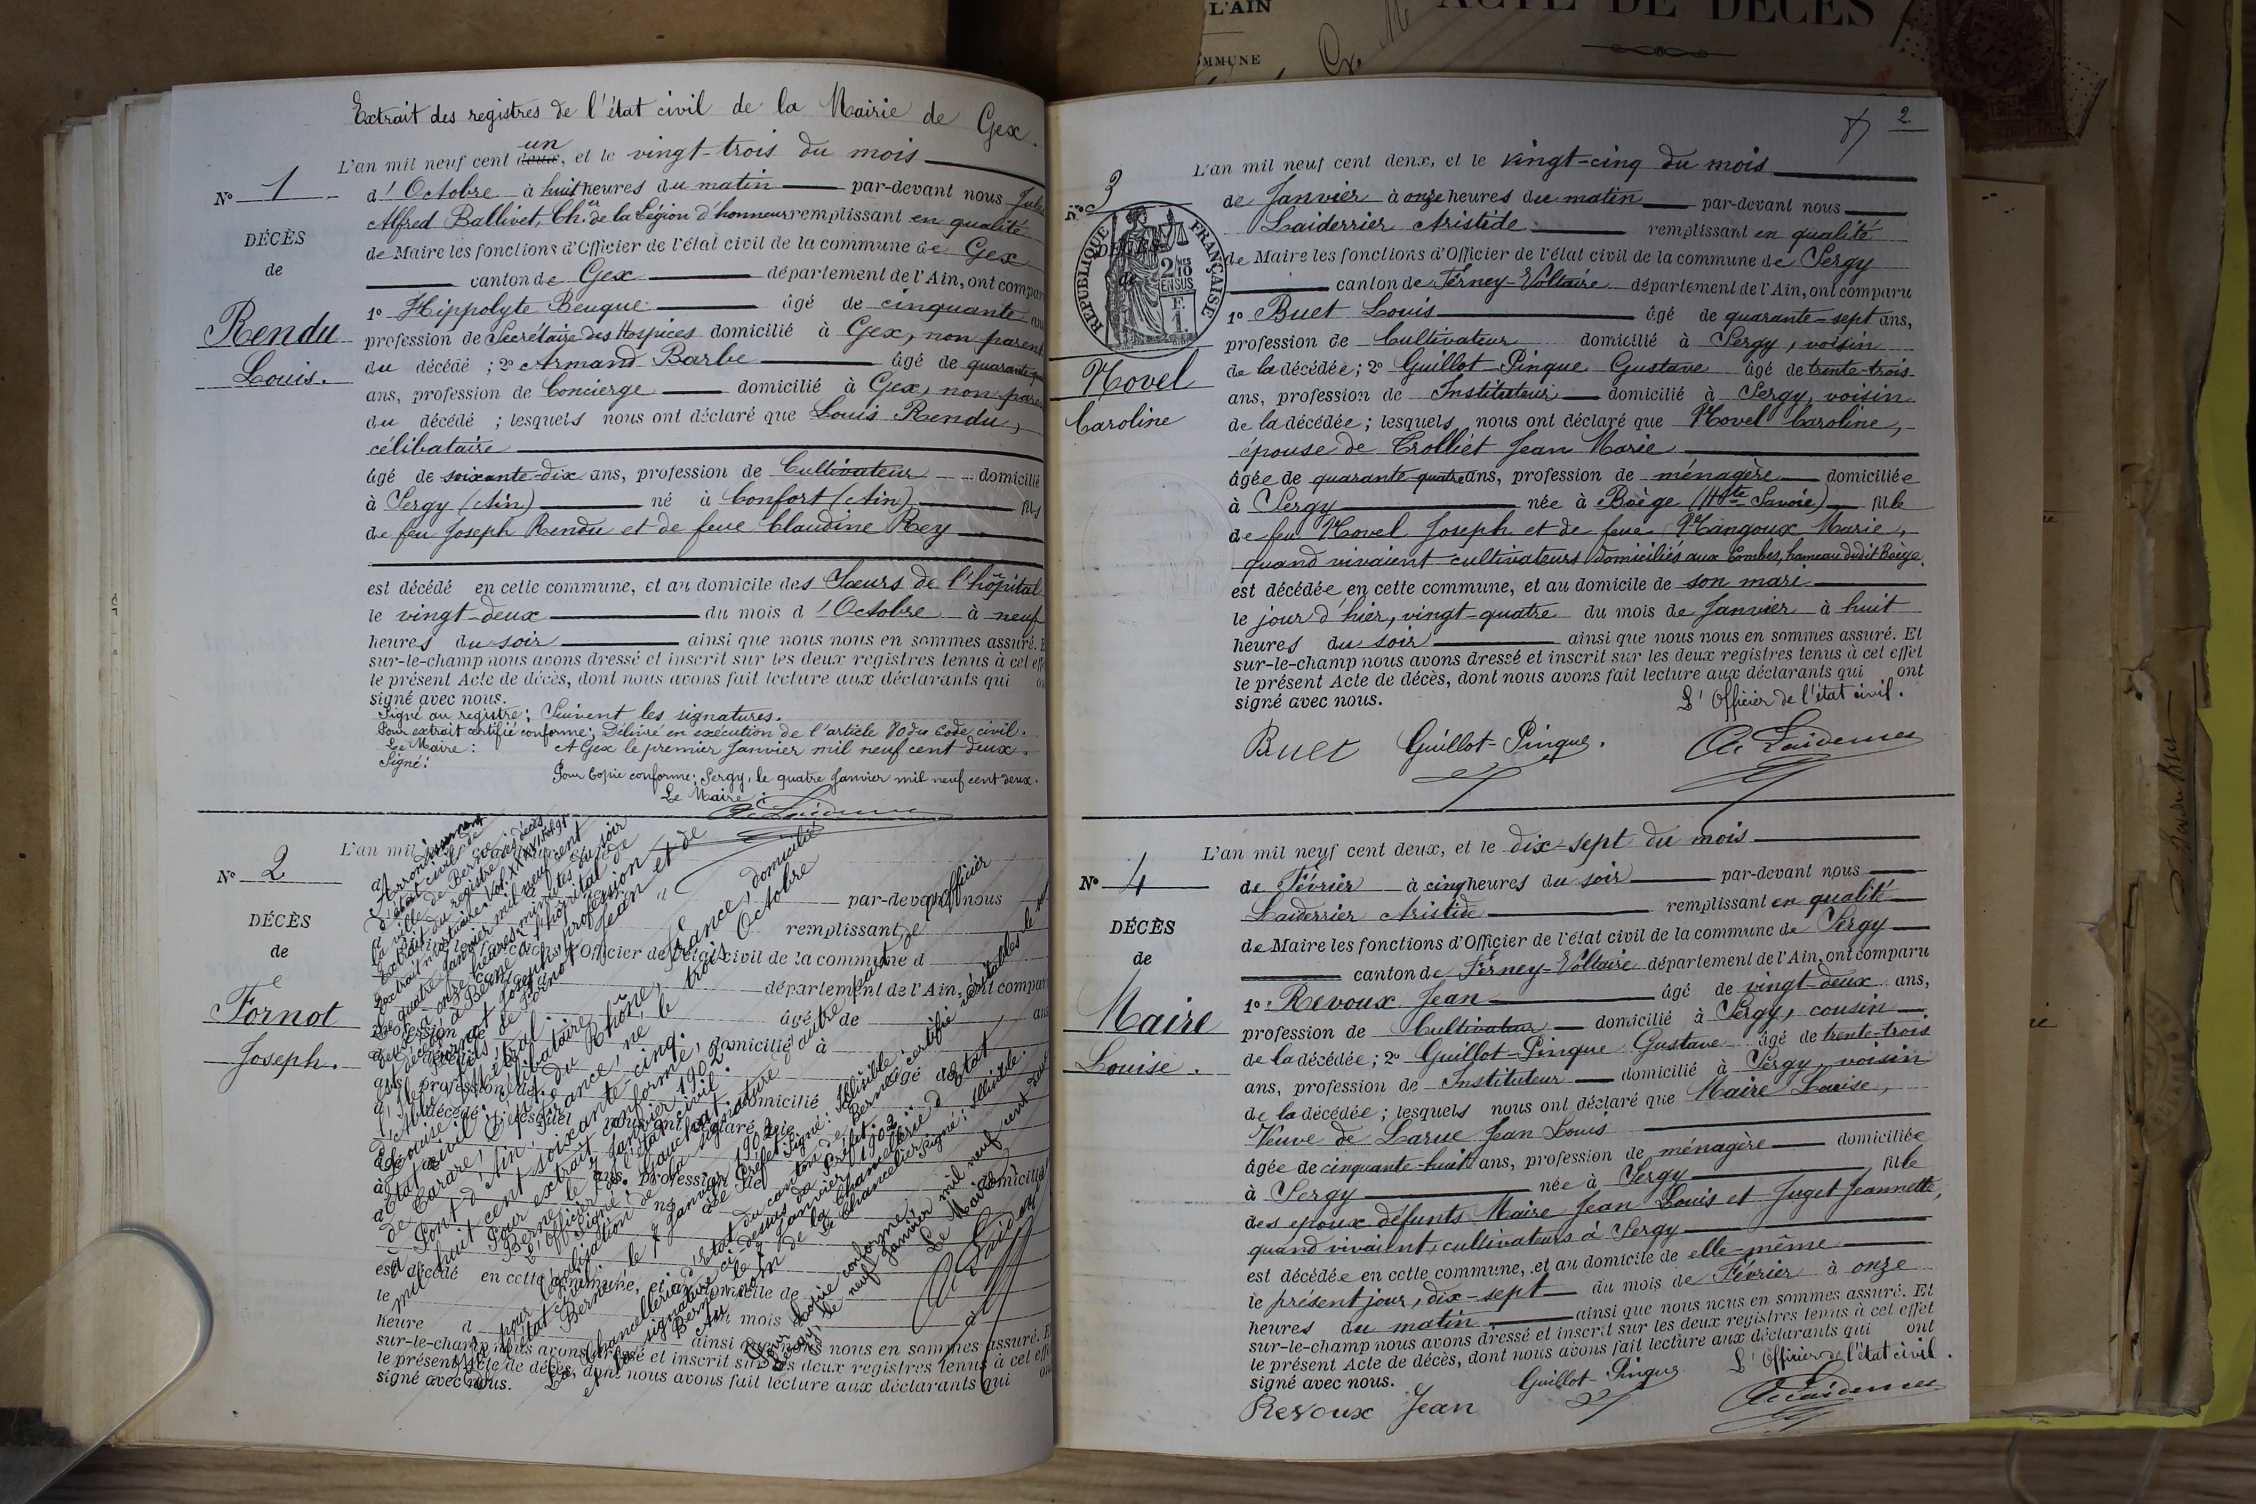 L'AIN
ACTE DE DÉCÈS
MMUNE
Extrait des registres de l'état civil de la Mairie de Gex.
un
L'an mil neuf cent deux, et le vingt-trois du mois
N° 1
d'Octobre à huit heures du matin par-devant nous Jules
Alfred Ballivet, Ch.er de la Légion d'honneur remplissant en qualité
DÉCÈS
de Maire les fonctions d'Officier de l'état civil de la commune de Gex
de
canton de Gex département de l'Ain, ont compar
1° Hippolyte Beugue âgé de cinquante ans
Rendu
profession de Secrétaire des Hospices domicilié à Gex, non parent
Louis.
du décédé ; 2° Armand Barbe âgé de quarante
ans, profession de Concierge domicilié à Gex, non paren
du décédé ; lesquels nous ont déclaré que Louis Rendu,
célibataire
âgé de soixante-dix ans, profession de Cultivateur domicilié
à Sergy (Ain) né à Confort (Ain) fils
de feu Joseph Rendu et de feue Claudine Rey
est décédé en cette commune, et au domicile des Sœurs de l'hôpital
le vingt-deux du mois d'Octobre à neuf
heures du soir ainsi que nous nous en sommes assuré. E
sur-le-champ nous avons dressé et inscrit sur les deux registres tenus à cet effe
le présent Acte de décès, dont nous avons fait lecture aux déclarants qui on
signé avec nous.
Signé au registre : Suivent les signatures.
Pour extrait certifié conforme : Délivré en exécution de l'article 80 du Code civil.
Le Maire : A Gex le premier Janvier mil neuf cent deux.
Signé :
Pour Copie conforme : Sergy, le quatre Janvier mil neuf cent deux.
Le Maire :
A. Laiderrier
L'an mil
N° 2
par-devant nous
DÉCÈS
remplissant
de
Officier de l'état civil de la commune d
département de l'Ain, ont compar
Fornot
âgé de ans
Joseph.
profession de domicilié à
Arrondissement
d'état civil de
la ville de Berne
Extrait du registre des décès
le quatre Janvier mil neuf cent
à onze heures minutes du soir
est décédé à Berne à l'hôpital de
Fornot Joseph profession
fils de Fornot Jean et de
Etat civil : célibataire
de Carare, Dép. du Rhône, France, domicilié
à Pont d'Ain, France, né le trois Octobre
mil huit cent soixante-cinq.
Pour extrait conforme,
Berne le 7 Janvier 1902.
L'Officier de l'état civil.
Vu pour légalisation de la signature d'autre part
de l'état civil
Berne le 7 Janvier 1902
Le Préfet Signé : Illisible.
La Chancellerie d'Etat du canton de Berne certifie véritables le
et la signature ci-dessus du Préfet.
Berne le 7 Janvier 1902.
Au nom de la Chancellerie d'Etat,
Le Chancelier Signé : Illisible.
Pour Copie conforme,
Sergy, le neuf Janvier mil neuf cent deux
Le Maire
A. Laiderrier
est décédé en cette commune, et au domicile de
le du mois d à
heure d ainsi que nous nous en sommes assuré. E
sur-le-champ nous avons dressé et inscrit sur les deux registres tenus à cet effe
le présent Acte de décès, dont nous avons fait lecture aux déclarants qui on
signé avec nous.
2
L'an mil neuf cent deux, et le vingt-cinq du mois
N° 3
de Janvier à onze heures du matin par-devant nous
Laiderrier Aristide remplissant en qualité
DÉCÈS
de
RÉPUBLIQUE FRANÇAISE
de Maire les fonctions d'Officier de l'état civil de la commune de Sergy
canton de Ferney-Voltaire département de l'Ain, ont comparu
1° Buet Louis âgé de quarante-sept ans,
profession de Cultivateur domicilié à Sergy, voisin
Novel
Caroline
de la décédée ; 2° Guillot-Pingue Gustave âgé de trente-trois
ans, profession de Instituteur domicilié à Sergy, voisin
de la décédée ; lesquels nous ont déclaré que Novel Caroline,
épouse de Trolliet Jean Marie
âgée de quarante-quatre ans, profession de ménagère domiciliée
à Sergy née à Boège (Hte Savoie) fille
de feu Novel Joseph et de feue Mangoux Marie,
quand vivaient cultivateurs domiciliés aux Combes, hameau dudit Boège.
est décédée en cette commune, et au domicile de son mari
le jour d'hier, vingt-quatre du mois de Janvier à huit
heures du soir ainsi que nous nous en sommes assuré. Et
sur-le-champ nous avons dressé et inscrit sur les deux registres tenus à cet effet
le présent Acte de décès, dont nous avons fait lecture aux déclarants qui ont
signé avec nous.
L'Officier de l'état civil.
Buet Guillot-Pingue. A. Laiderrier
L'an mil neuf cent deux, et le dix-sept du mois
N° 4
de Février à cinq heures du soir par-devant nous
Laiderrier Aristide remplissant en qualité
DÉCÈS
de Maire les fonctions d'Officier de l'état civil de la commune de Sergy
de
canton de Ferney-Voltaire département de l'Ain, ont comparu
1° Revoux Jean âgé de vingt-deux ans,
Maire
profession de Cultivateur domicilié à Sergy, cousin
Louise.
de la décédée ; 2° Guillot-Pingue Gustave âgé de trente-trois
ans, profession de Instituteur domicilié à Sergy, voisin
de la décédée ; lesquels nous ont déclaré que Maire Louise,
Veuve de Larue Jean Louis
âgée de cinquante-huit ans, profession de ménagère domiciliée
à Sergy née à Sergy fille
des époux défunts Maire Jean Louis et Juget Jeannette,
quand vivaient, cultivateurs à Sergy
est décédée en cette commune, et au domicile de elle-même
le présent jour, dix-sept du mois de Février à onze
heures du matin ainsi que nous nous en sommes assuré. Et
sur-le-champ nous avons dressé et inscrit sur les deux registres tenus à cet effet
le présent Acte de décès, dont nous avons fait lecture aux déclarants qui ont
signé avec nous.
L'Officier de l'état civil.
Revoux Jean Guillot-Pingue A. Laiderrier